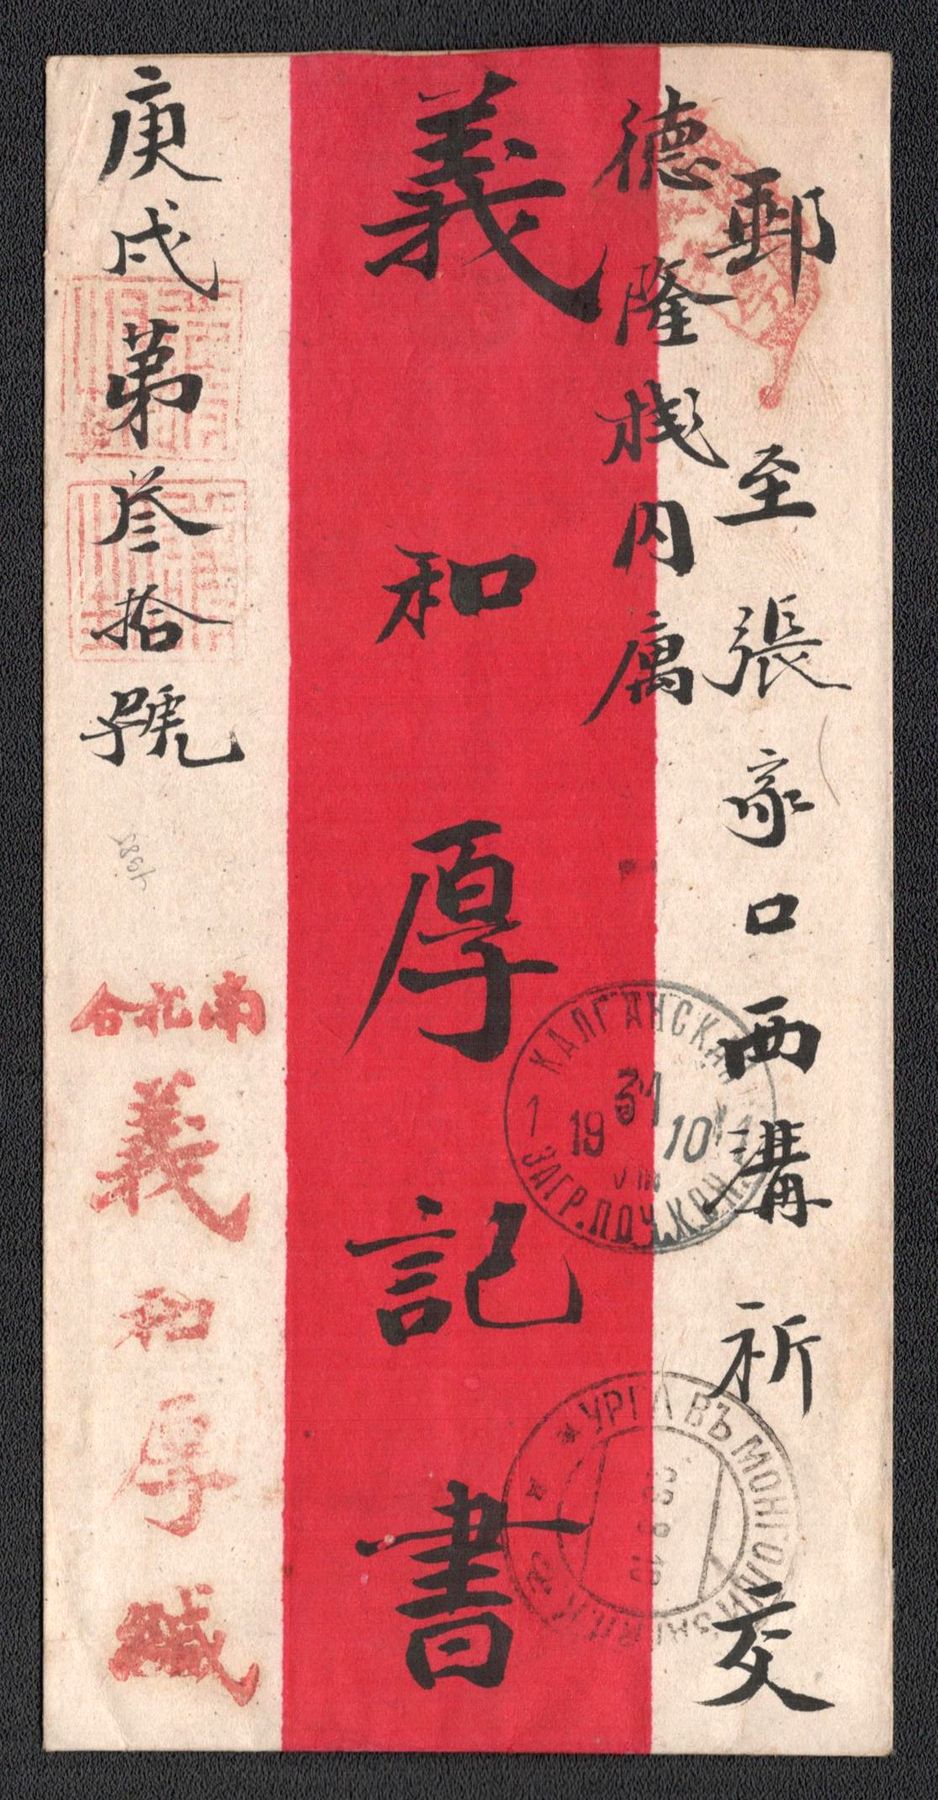 郵至張家口西溝祈交
德隆栈内寓
義和厚記書
庚戌第叁拾號
南北合
義和厚緘
КАЛГАНСКАЯ
31
1910
VIII
ЗАГР.ПОЧ.КОН.
УРГА ВЪ МОНГОЛІИ
URGA